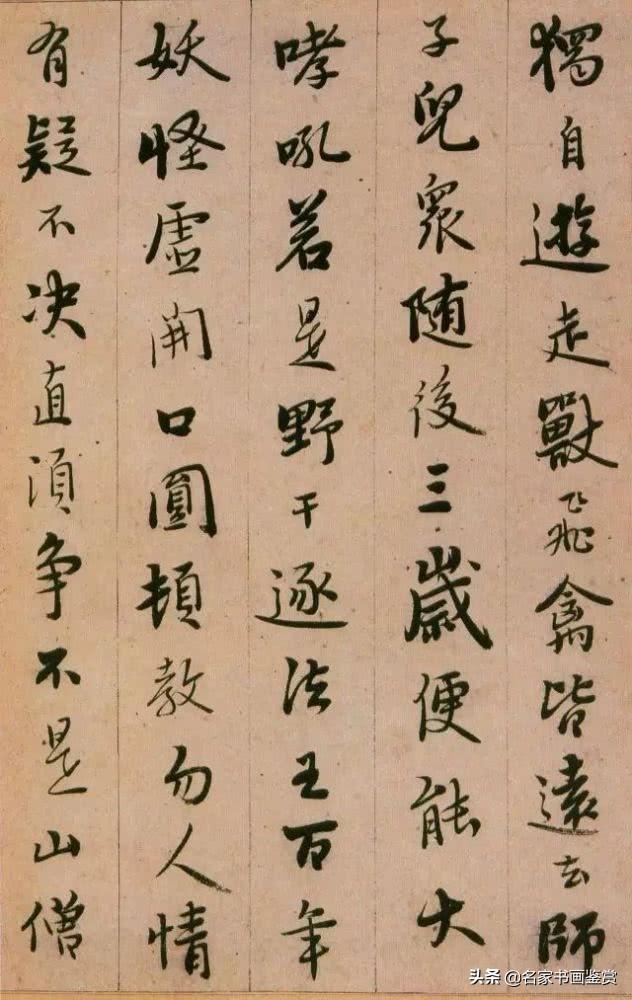 獨自遊走獸飛禽皆遠去師
子兒衆随後三歲便能大
哮吼若是野干逐法王百年
妖怪虚開口圓頓教勿人情
有疑不决直須争不是山僧
头条 @名家书画鉴赏